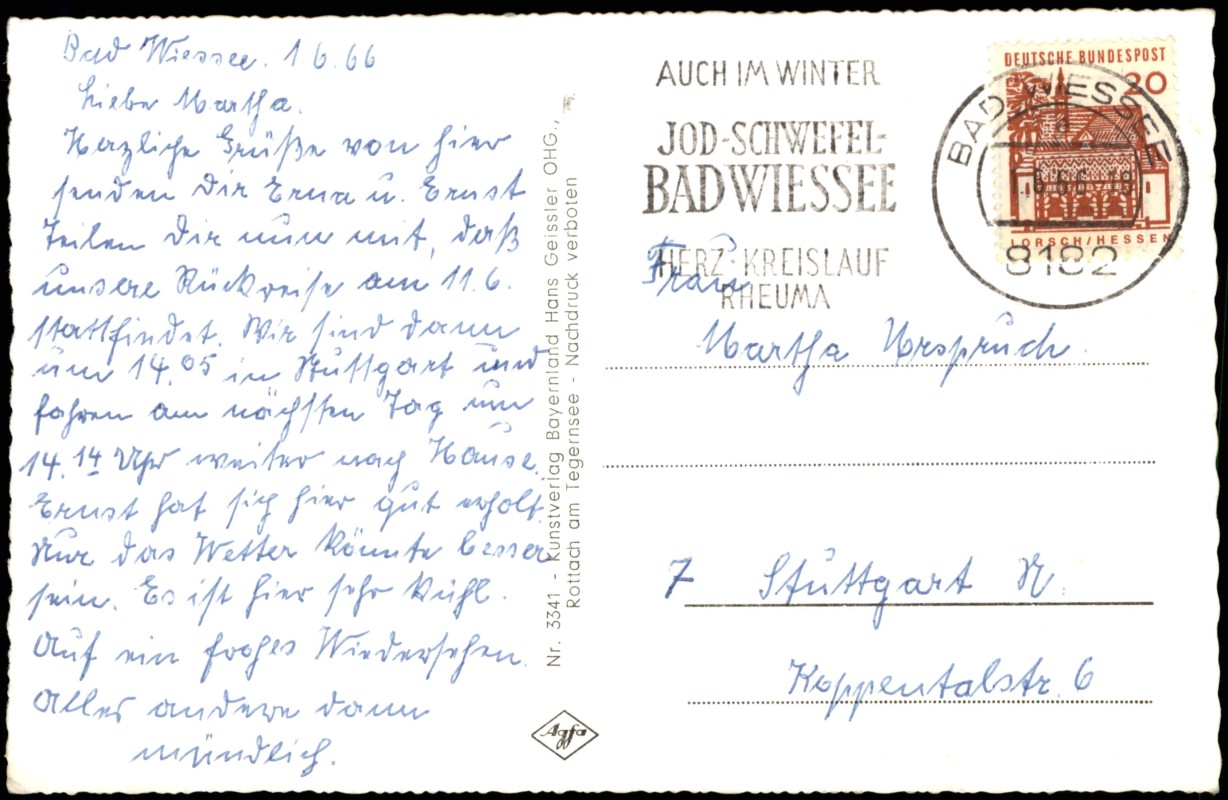 Bad Wiessee. 1.6.66
Liebe Martha.
Herzliche Grüße von hier
senden Dir Erna u. Ernst
Teilen Dir nun mit, daß
unsere Rückreise am 11.6.
stattfindet. Wir sind dann
um 14.05 in Stuttgart und
fahren am nächsten Tag um
14.14 Uhr weiter nach Hause.
Ernst hat sich hier gut erholt.
Nur das Wetter könnte besser
sein. Es ist hier sehr kühl.
Auf ein frohes Wiedersehen.
Alles andere dann
mündlich.
Nr. 3341 - Kunstverlag Bayernland Hans Geissler OHG.,
Rottach am Tegernsee - Nachdruck verboten
Agfa
AUCH IM WINTER
JOD-SCHWEFEL-
BAD WIESSEE
HERZ·KREISLAUF
RHEUMA
DEUTSCHE BUNDESPOST
20
LORSCH/HESSEN
BAD WIESSEE
8182
Frau
Martha Urspruch
7 Stuttgart N.
Koppentalstr. 6